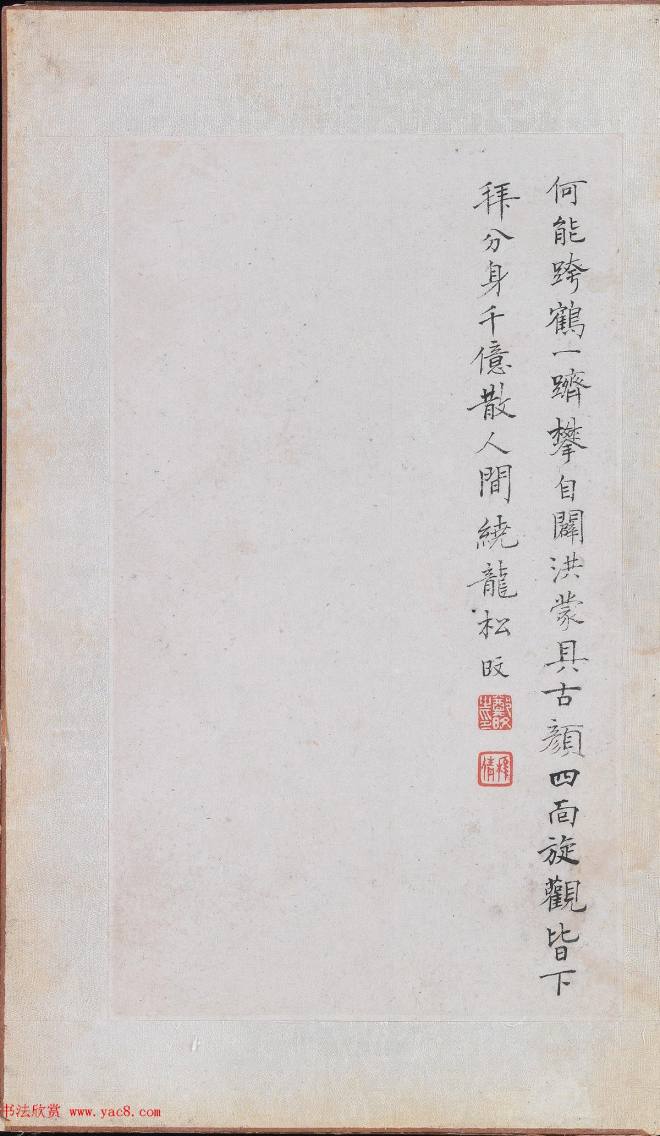 何能跨鶴一躋攀自闢洪蒙具古顏四面旋觀皆下
拜分身千億散人間繞龍松旼
鄭旼之印
慕倩
书法欣赏 www.yac8.com